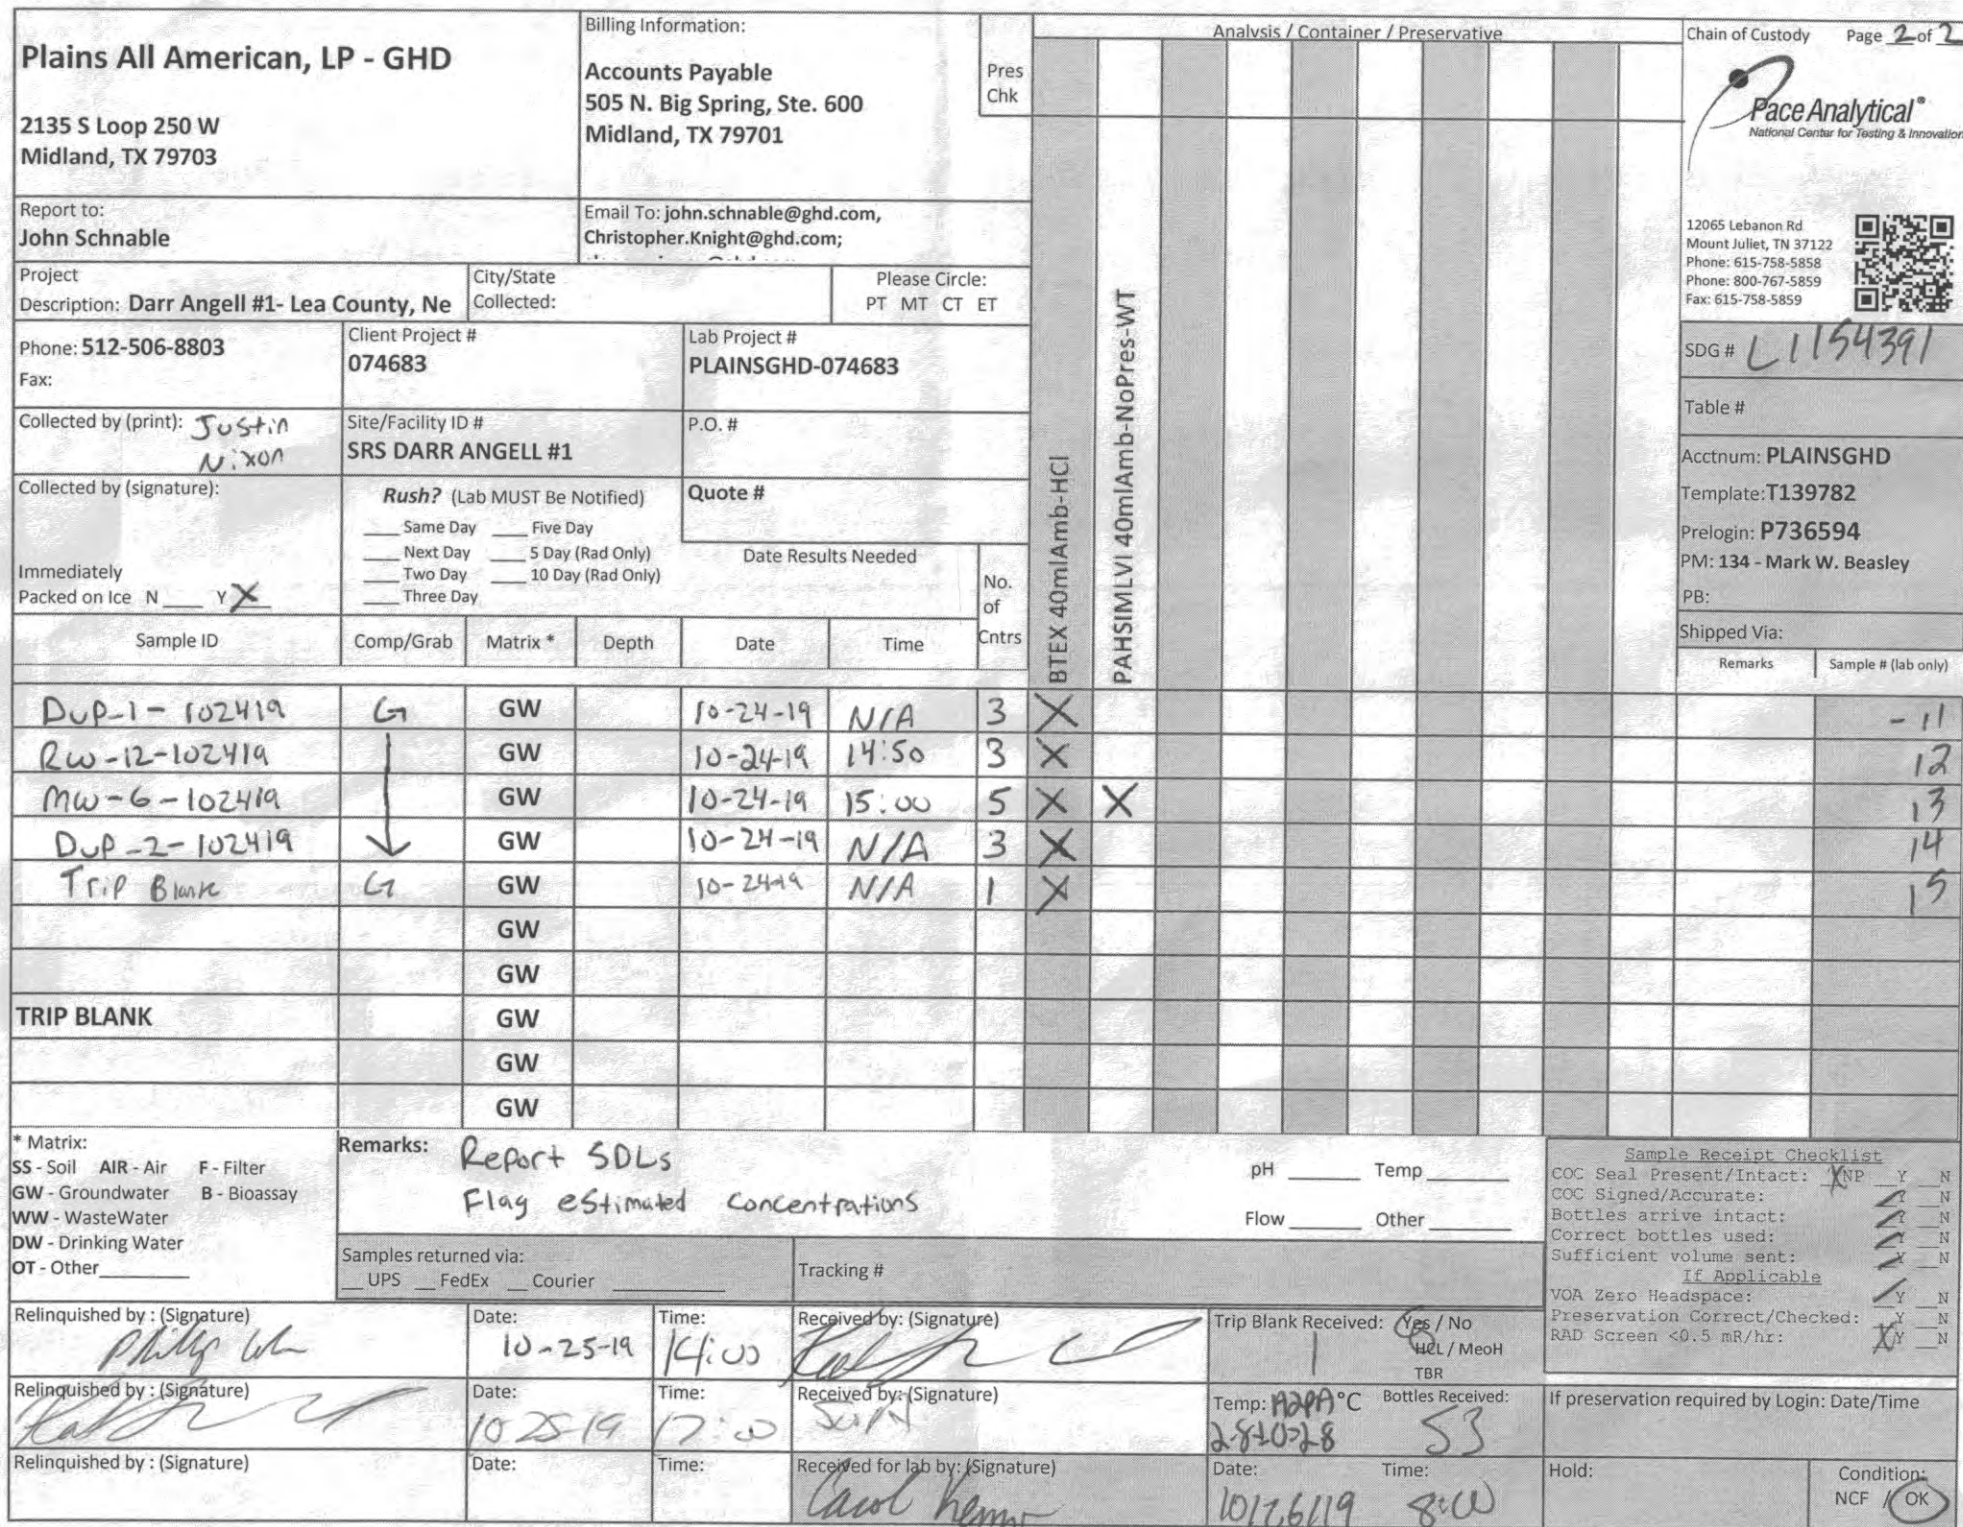 Plains All American, LP - GHD
2135 S Loop 250 W
Midland, TX 79703
Billing Information:
Accounts Payable
505 N. Big Spring, Ste. 600
Midland, TX 79701
Pres
Chk
Analysis / Container / Preservative
Chain of Custody Page 2 of 2
Pace Analytical®
National Center for Testing & Innovation
12065 Lebanon Rd
Mount Juliet, TN 37122
Phone: 615-758-5858
Phone: 800-767-5859
Fax: 615-758-5859
Report to:
John Schnable
Email To: john.schnable@ghd.com,
Christopher.Knight@ghd.com;
Project
Description: Darr Angell #1- Lea County, Ne
City/State
Collected:
Please Circle:
PT MT CT ET
Phone: 512-506-8803
Fax:
Client Project #
074683
Lab Project #
PLAINSGHD-074683
Collected by (print): Justin
Nixon
Site/Facility ID #
SRS DARR ANGELL #1
P.O. #
Collected by (signature):
Immediately
Packed on Ice N ___ Y X
Rush? (Lab MUST Be Notified)
___ Same Day ___ Five Day
___ Next Day ___ 5 Day (Rad Only)
___ Two Day ___ 10 Day (Rad Only)
___ Three Day
Quote #
Date Results Needed
No.
of
Cntrs
BTEX 40mlAmb-HCl
PAHSIMLVI 40mlAmb-NoPres-WT
SDG # L1154391
Table #
Acctnum: PLAINSGHD
Template:T139782
Prelogin: P736594
PM: 134 - Mark W. Beasley
PB:
Shipped Via:
Sample ID Comp/Grab Matrix * Depth Date Time Remarks Sample # (lab only)
DUP-1-102419 G GW 10-24-19 N/A 3 X -11
RW-12-102419 GW 10-24-19 14:50 3 X 12
MW-6-102419 GW 10-24-19 15:00 5 X X 13
DUP-2-102419 GW 10-24-19 N/A 3 X 14
Trip Blank G GW 10-24-19 N/A 1 X 15
GW
GW
TRIP BLANK GW
GW
GW
* Matrix:
SS - Soil AIR - Air F - Filter
GW - Groundwater B - Bioassay
WW - WasteWater
DW - Drinking Water
OT - Other
Remarks: Report SDLs
Flag estimated concentrations
pH ___ Temp ___
Flow ___ Other ___
Samples returned via:
__ UPS __ FedEx __ Courier
Tracking #
Sample Receipt Checklist
COC Seal Present/Intact: X NP _Y _N
COC Signed/Accurate: Y _N
Bottles arrive intact: Y _N
Correct bottles used: Y _N
Sufficient volume sent: Y _N
If Applicable
VOA Zero Headspace: Y _N
Preservation Correct/Checked: _Y _N
RAD Screen <0.5 mR/hr: X Y _N
Relinquished by : (Signature)
Date:
10-25-19
Time:
14:00
Received by: (Signature)
Trip Blank Received: Yes / No
1
HCL / MeoH
TBR
Relinquished by : (Signature)
Date:
10 25 19
Time:
17:00
Received by: (Signature)
Temp: °C
Bottles Received:
53
If preservation required by Login: Date/Time
Relinquished by : (Signature)
Date:
Time:
Received for lab by: (Signature)
Date:
10/26/19
Time:
8:00
Hold:
Condition:
NCF / OK